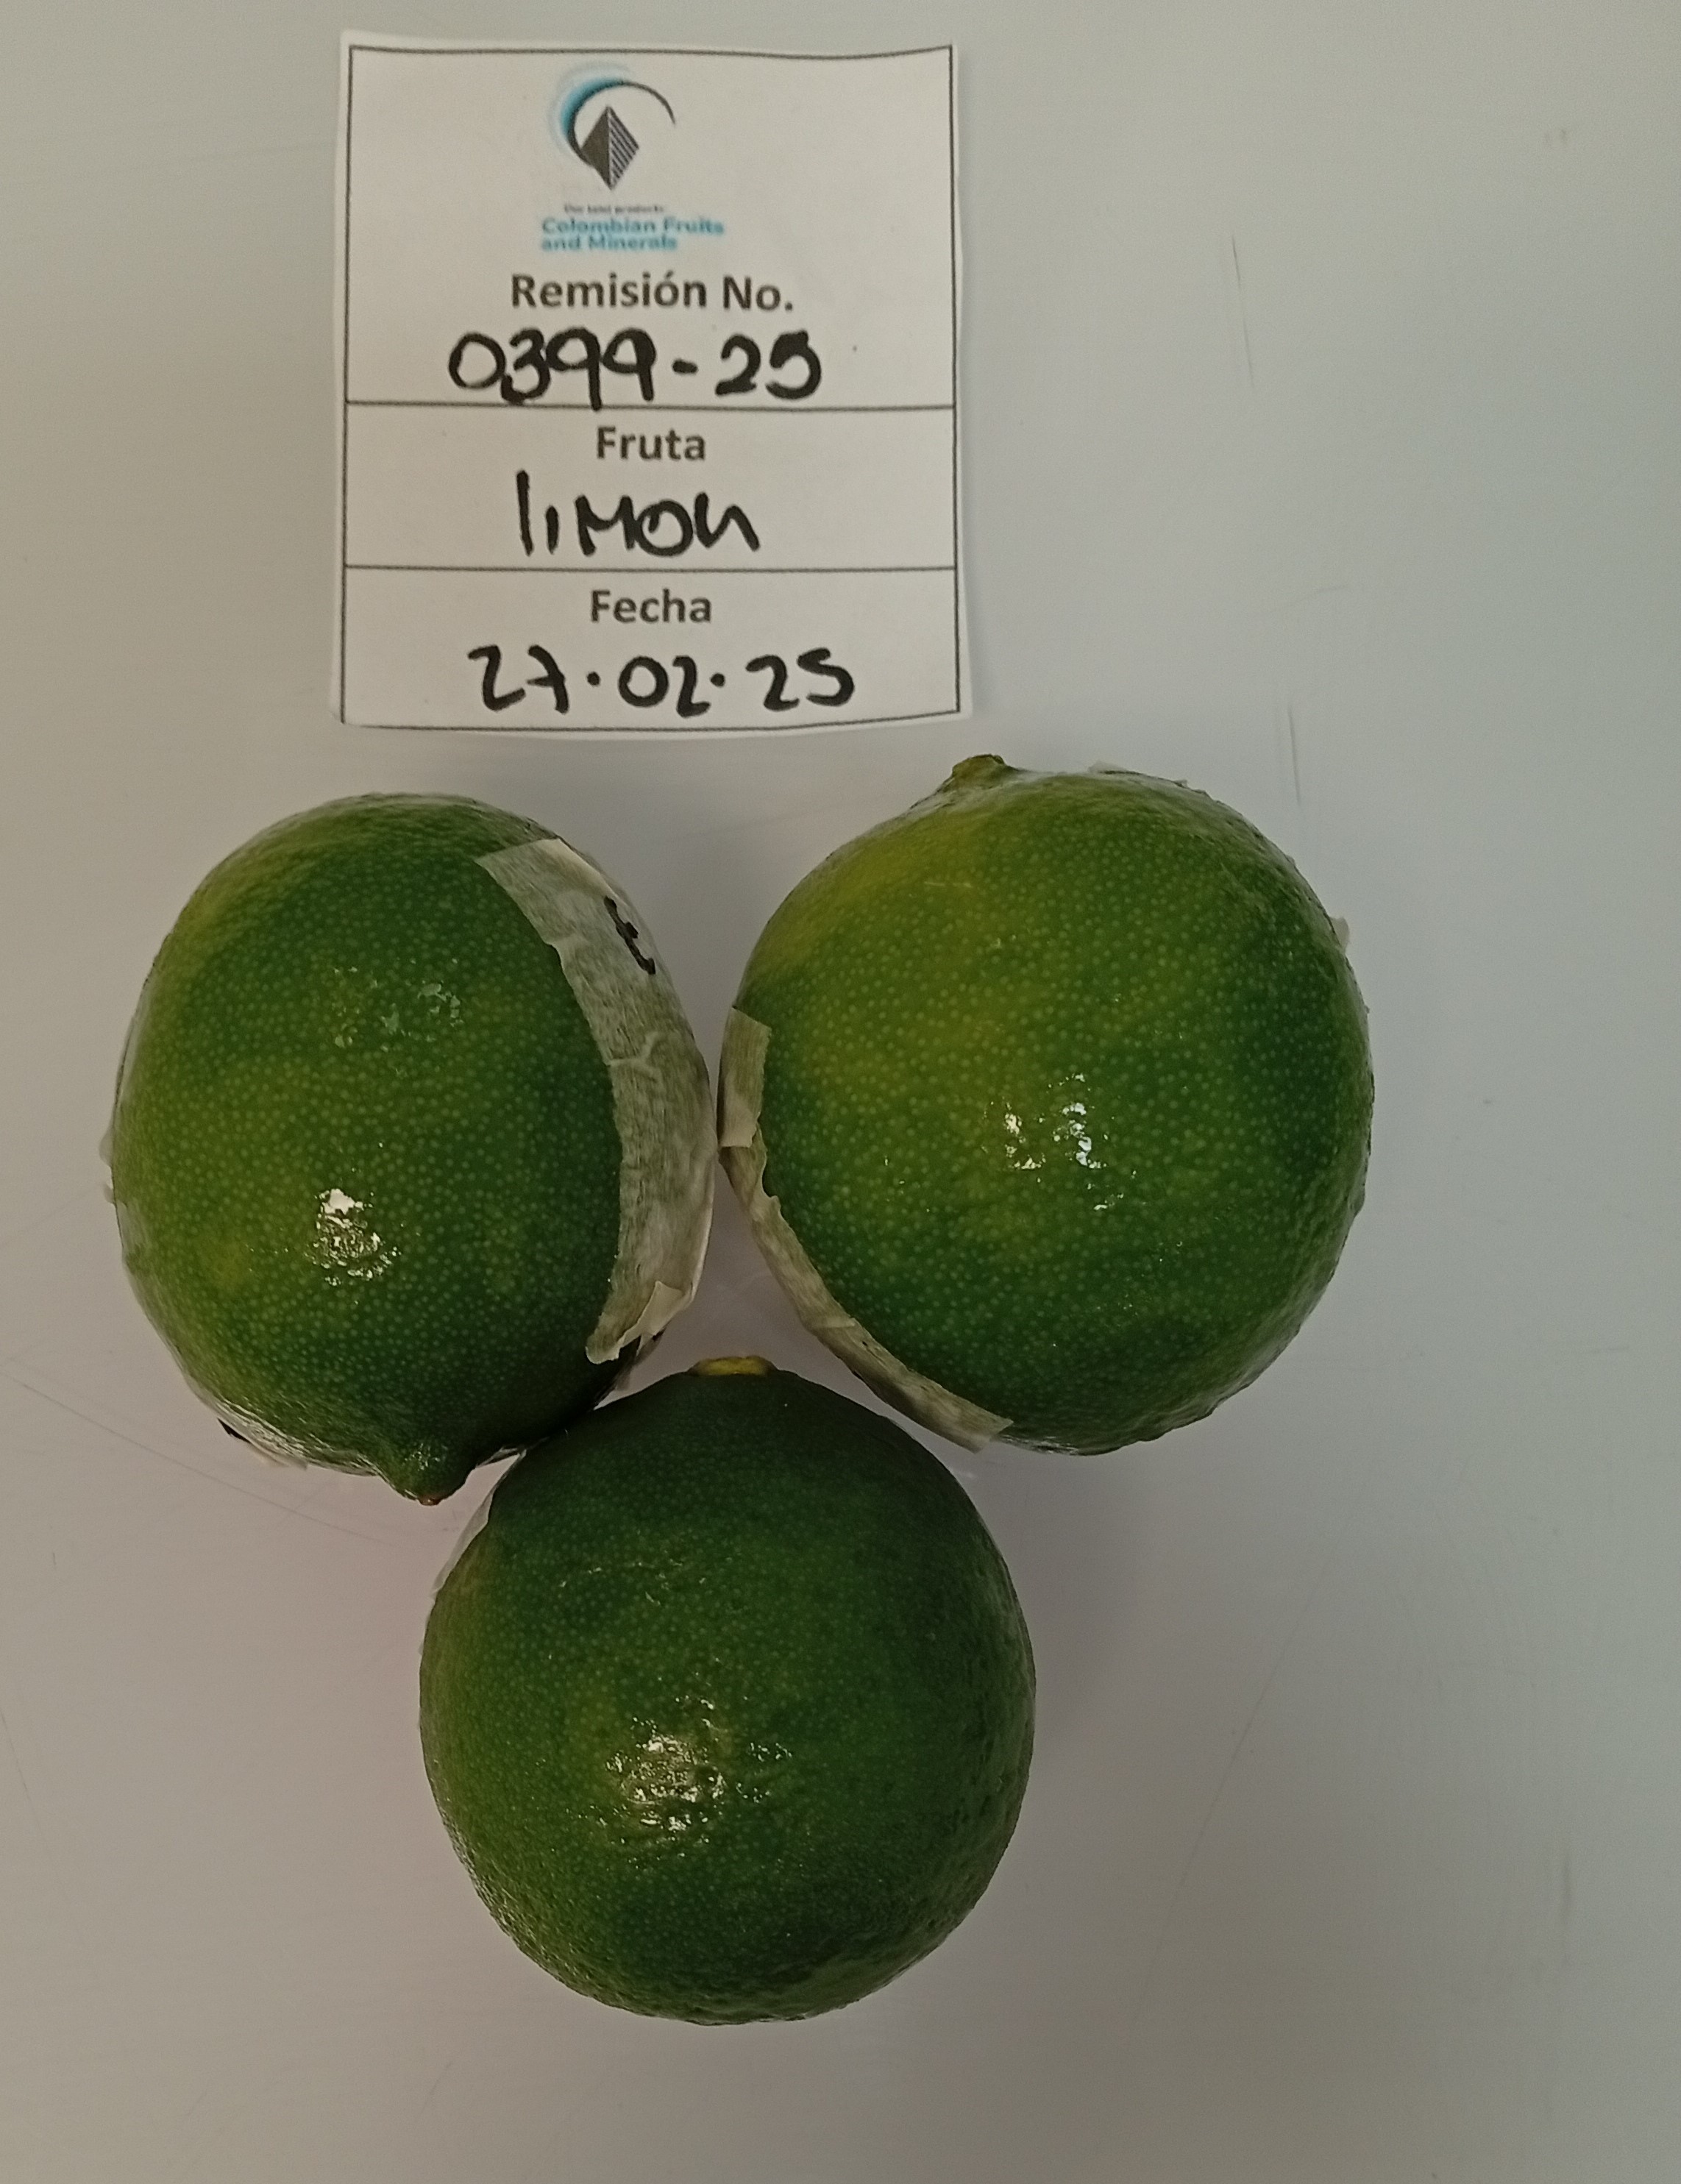 Our land products
Colombian Fruits
and Minerals
Remisión No.
0399-25
Fruta
limon
Fecha
27.02.25